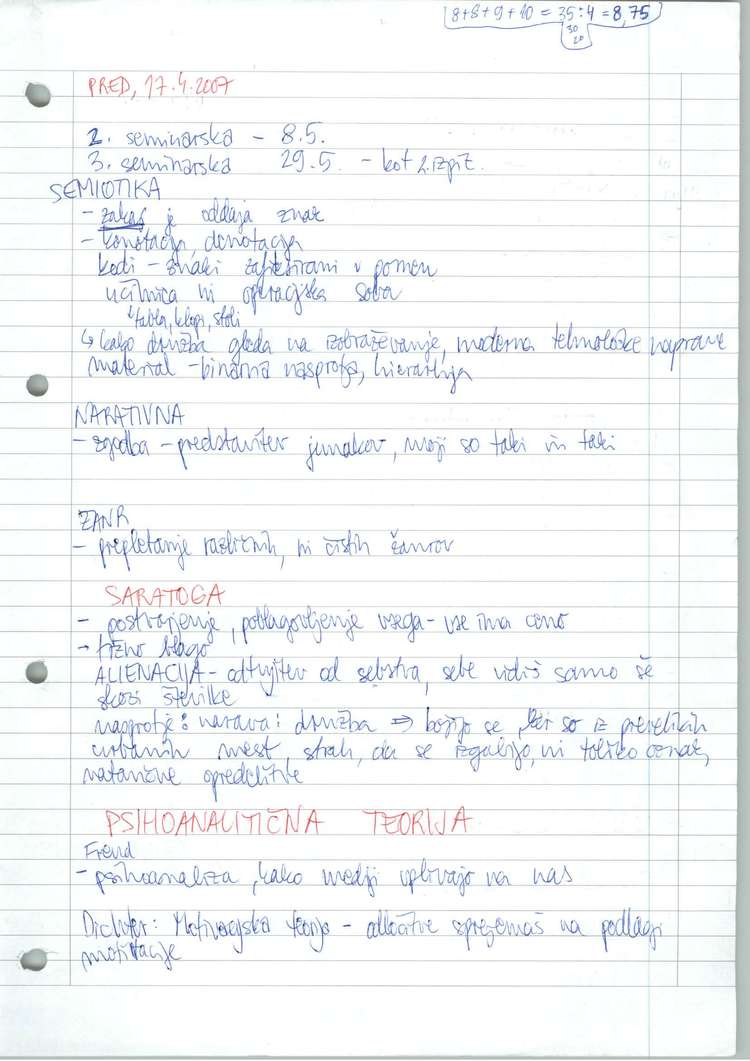 8+8+9+10 = 35:4 = 8,75
30
20
PRED, 17.4.2007
2. seminarska - 8.5.
3. seminarska 29.5. - kot 2. izpit.
SEMIOTIKA
- zakaj je oddaja znak
- konotacija, denotacija
kodi - znaki zafiksirani v pomenu
učilnica ni operacijska soba
↳ tabla, klopi, stoli
↳ kako družba gleda na izobraževanje, moderna tehnološke naprave
material - binarna nasprotja, hierarhija
NARATIVNA
- zgodba - predstavitev junakov, moji so taki in taki
ŽANR
- prepletanje različnih, ni čistih žanrov
SARATOGA
- postvarjenje, poblagovljenje vsega - vse ima ceno
- tržno blago
ALIENACIJA - odtujitev od sebstva, sebe vidiš samo še
skozi številke
nasprotje: narava : družba ⇒ bojijo se, ker so iz prevelikih
urbanih mest, strah, da se izgubijo, ni toliko oznak,
natančne opredelitve
PSIHOANALITIČNA TEORIJA
Freud
- psihoanaliza, kako mediji vplivajo na nas
Dichter: Motivacijska teorija - odločitve sprejemaš na podlagi
motivacije